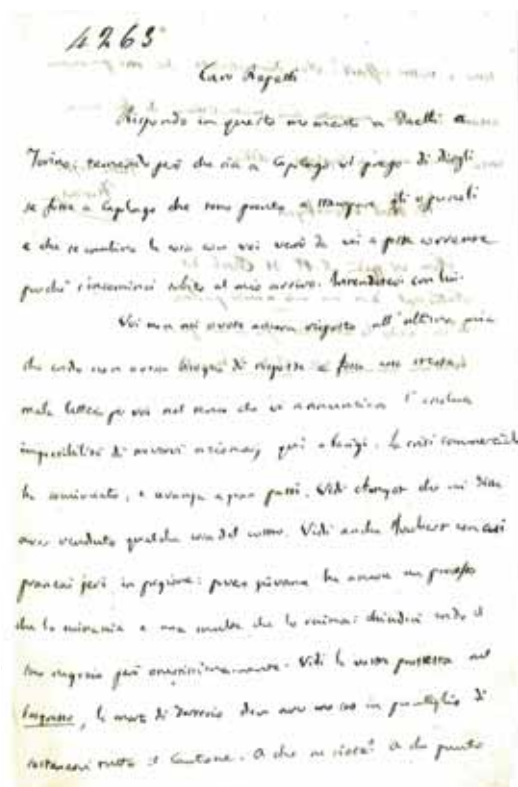 4263
Caro Repetti
Rispondo in questo momento a Daelli a
Torino; temendo però che sia a Capolago vi prego di dirgli
se fosse a Capolago che sono pronto a stampare gli opuscoli
e che se combina la cosa con voi verrò da voi a posta corrente
perché s'incominci subito al mio arrivo. Intendetevi con lui.
Voi non mi avete ancora risposto all'ultima mia
che credo non avesse bisogno di risposta e fosse una
mala lettera per voi nel senso che vi annunziava l'
impossibilità di trovarvi azionarj qui a Parigi. La crisi commerciale
ha cominciato, e avanza a gran passi. Vidi che mi disse
aver venduto qualche cosa del vostro. Vidi anche con cui
pranzai jeri in prigione: ha ancora un processo
che lo minaccia e una multa che lo rovina: chiuderà credo il
suo negozio però onestissimamente. Vidi la vostra protesta nel
Progresso, la morte di deve aver messo in puntiglio di
tutto il Cantone. A che ne siete? A che punto